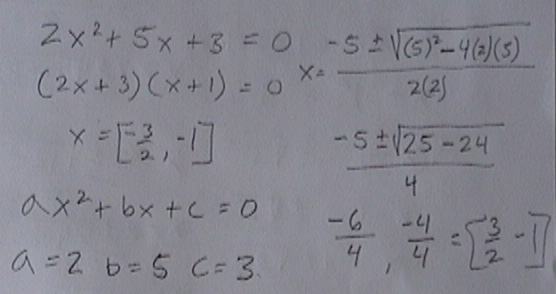 2x² + 5x + 3 = 0
(2x + 3)(x + 1) = 0
x = [-3/2, -1]
ax² + bx + c = 0
a = 2 b = 5 c = 3
x = (-5 ± √((5)² - 4(2)(5)))/(2(2))
(-5 ± √(25 - 24))/4
-6/4, -4/4 = [3/2 -1]